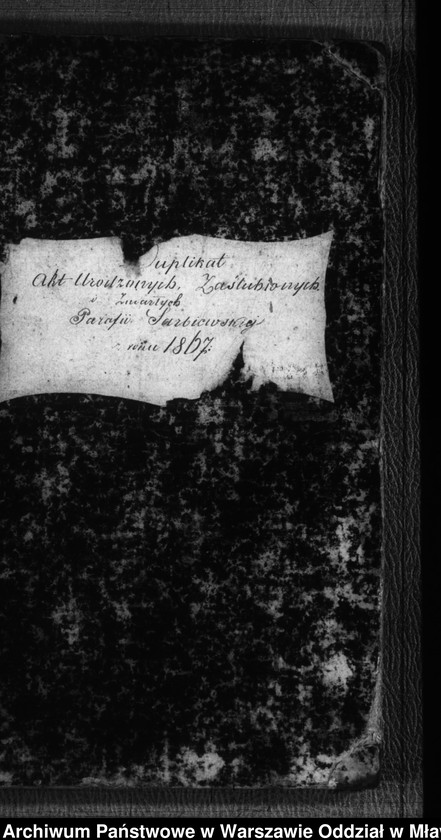 uplikat
Akt Urodzonych, Zaślubionych
i Zmarłych
Parafii Sarbiewskiej
z roku 1867.
Archiwum Państwowe w Warszawie Oddział w Mła